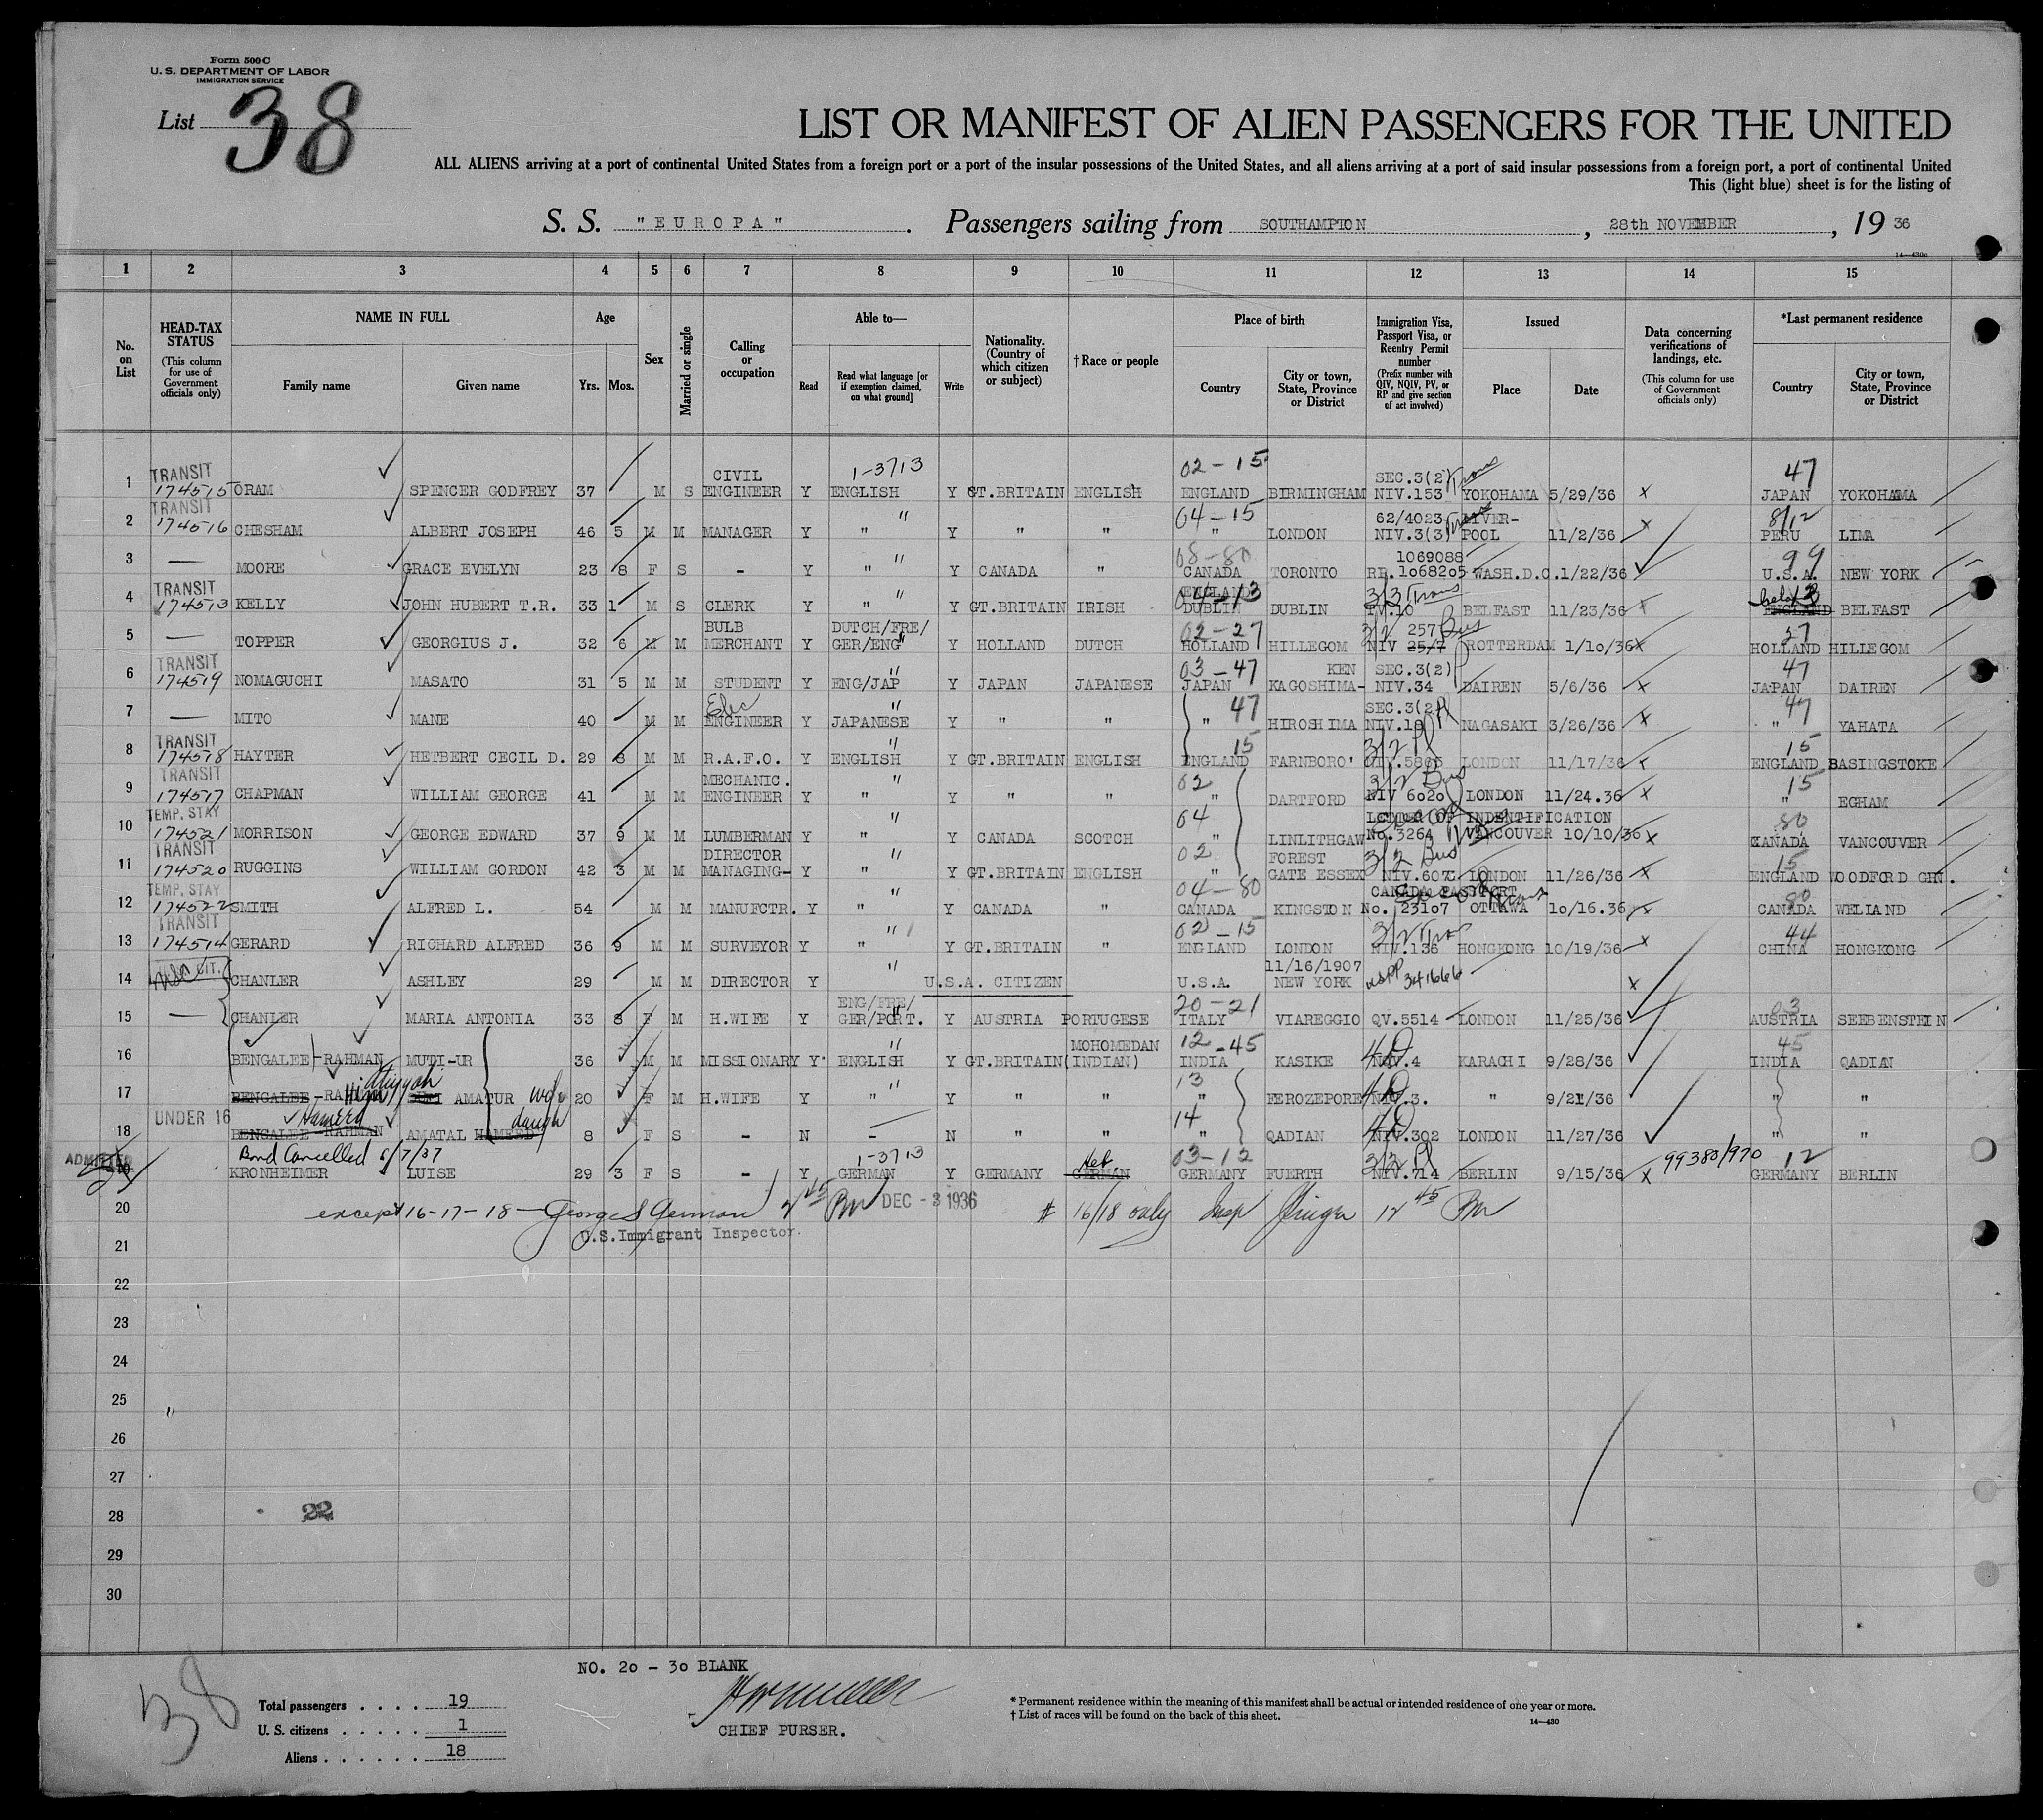 Form 500 C
U. S. DEPARTMENT OF LABOR
IMMIGRATION SERVICE
List 38
LIST OR MANIFEST OF ALIEN PASSENGERS FOR THE UNITED
ALL ALIENS arriving at a port of continental United States from a foreign port or a port of the insular possessions of the United States, and all aliens arriving at a port of said insular possessions from a foreign port, a port of continental United
This (light blue) sheet is for the listing of
S. S. "EUROPA" . Passengers sailing from SOUTHAMPTON , 28th NOVEMBER , 19 36
14—430c
1 2 3 4 5 6 7 8 9 10 11 12 13 14 15
No. on List
HEAD-TAX STATUS (This column for use of Government officials only)
NAME IN FULL
Family name Given name
Age
Yrs. Mos.
Sex
Married or single
Calling or occupation
Able to—
Read
Read what language [or if exemption claimed, on what ground]
Write
Nationality. (Country of which citizen or subject)
† Race or people
Place of birth
Country
City or town, State, Province or District
Immigration Visa, Passport Visa, or Reentry Permit number (Prefix number with QIV, NQIV, PV, or RP and give section of act involved)
Issued
Place Date
Data concerning verifications of landings, etc. (This column for use of Government officials only)
*Last permanent residence
Country
City or town, State, Province or District
TRANSIT CIVIL 1-3713 02-15 SEC.3(2) Trans 47
1 174515 ORAM SPENCER GODFREY 37 M S ENGINEER Y ENGLISH Y GT.BRITAIN ENGLISH ENGLAND BIRMINGHAM NIV.153 YOKOHAMA 5/29/36 x JAPAN YOKOHAMA
TRANSIT " 04-15 62/4023 Trans LIVER- 8/12
2 174516 CHESHAM ALBERT JOSEPH 46 5 M M MANAGER Y " Y " " " LONDON NIV.3(3) POOL 11/2/36 x PERU LIMA
" 08-80 1069088 99
3 — MOORE GRACE EVELYN 23 8 F S - Y " Y CANADA " CANADA TORONTO RP.1068205 WASH.D.C. 1/22/36 U.S.A. NEW YORK
TRANSIT " ENGLAND 04-13 3/3 Trans
4 174513 KELLY JOHN HUBERT T.R. 33 1 M S CLERK Y " Y GT.BRITAIN IRISH DUBLIN DUBLIN TV.10 BELFAST 11/23/36 x ENGLAND BELFAST
BULB DUTCH/FRE/ 02-27 3/2 257 Bus 27
5 — TOPPER GEORGIUS J. 32 6 M M MERCHANT Y GER/ENG Y HOLLAND DUTCH HOLLAND HILLEGOM NIV 25/7 ROTTERDAM 1/10/36 x HOLLAND HILLEGOM
TRANSIT " 03-47 KEN SEC.3(2) 47
6 174519 NOMAGUCHI MASATO 31 5 M M STUDENT Y ENG/JAP Y JAPAN JAPANESE JAPAN KAGOSHIMA- NIV.34 DAIREN 5/6/36 x JAPAN DAIREN
Elec " 47 SEC.3(2) Pl 47
7 — MITO MANE 40 M M ENGINEER Y JAPANESE Y " " " HIROSHIMA NIV.19 NAGASAKI 3/26/36 x " YAHATA
TRANSIT " 15 3/2 Pl 15
8 174518 HAYTER HETBERT CECIL D. 29 8 M M R.A.F.O. Y ENGLISH Y GT.BRITAIN ENGLISH ENGLAND FARNBORO' LONDON 11/17/36 x ENGLAND BASINGSTOKE
TRANSIT MECHANIC. " 02 3/2 Bus 15
9 174517 CHAPMAN WILLIAM GEORGE 41 M M ENGINEER Y " Y " " " DARTFORD NIV 6020 LONDON 11/24.36 x " EGHAM
TEMP. STAY " 04 LETTER OF INDENTIFICATION 80
10 174521 MORRISON GEORGE EDWARD 37 9 M M LUMBERMAN Y " Y CANADA SCOTCH " LINLITHGAW No.3264 VANCOUVER 10/10/36 x CANADA VANCOUVER
TRANSIT DIRECTOR " 02 FOREST 3/2 Bus 15
11 174520 RUGGINS WILLIAM GORDON 42 3 M M MANAGING- Y " Y GT.BRITAIN ENGLISH " GATE ESSEX NIV.607 LONDON 11/26/36 x ENGLAND WOODFORD GRN.
TEMP. STAY " 04-80 CANADA PASSPORT 80
12 174522 SMITH ALFRED L. 54 M M MANUFCTR. Y " Y CANADA " CANADA KINGSTON No. 23107 OTTAWA 10/16.36 x CANADA WELLAND
TRANSIT " 02-15 3/2 Trans 44
13 174514 GERARD RICHARD ALFRED 36 9 M M SURVEYOR Y " Y GT.BRITAIN " ENGLAND LONDON NIV.136 HONGKONG 10/19/36 x CHINA HONGKONG
CIT. " 11/16/1907 USPP
14 CHANLER ASHLEY 29 M M DIRECTOR Y U.S.A. CITIZEN U.S.A. NEW YORK 341666 x
ENG/FRE/ 20-21 03
15 — CHANLER MARIA ANTONIA 33 8 F M H.WIFE Y GER/PORT. Y AUSTRIA PORTUGESE ITALY VIAREGGIO QV.5514 LONDON 11/25/36 AUSTRIA SEEBENSTEIN
" MOHOMEDAN 12-45 4D 45
16 BENGALEE-RAHMAN MUTI-UR 36 M M MISSIONARY Y ENGLISH Y GT.BRITAIN (INDIAN) INDIA KASIKE NQV.4 KARACHI 9/28/36 INDIA QADIAN
" 13 4D
17 BENGALEE-RAHMAN AMATUR wife 20 F M H.WIFE Y " Y " " " FEROZEPORE NIV.3. " 9/21/36 " "
UNDER 16 Hameed daugh 14 4D
18 BENGALEE-RAHMAN AMATAL HAMEED 8 F S - N - N " " " QADIAN NIV.302 LONDON 11/27/36 " "
ADMITTED Bond Cancelled 6/7/37 1-3713 Heb 03-12 3/2 Pl 99380/970 12
19 KRONHEIMER LUISE 29 3 F S - Y GERMAN Y GERMANY GERMAN GERMANY FUERTH NIV.714 BERLIN 9/15/36 x GERMANY BERLIN
20 except 16-17-18 — 2 45 PM DEC - 3 1936 # 16/18 only Insp 12 45 PM
U.S. Immigrant Inspector.
21
22
23
24
25
26
27
28 22
29
30
NO. 20 - 30 BLANK
38
Total passengers . . . . 19
U. S. citizens . . . . . 1
Aliens . . . . . . 18
CHIEF PURSER.
* Permanent residence within the meaning of this manifest shall be actual or intended residence of one year or more.
† List of races will be found on the back of this sheet.
14—430